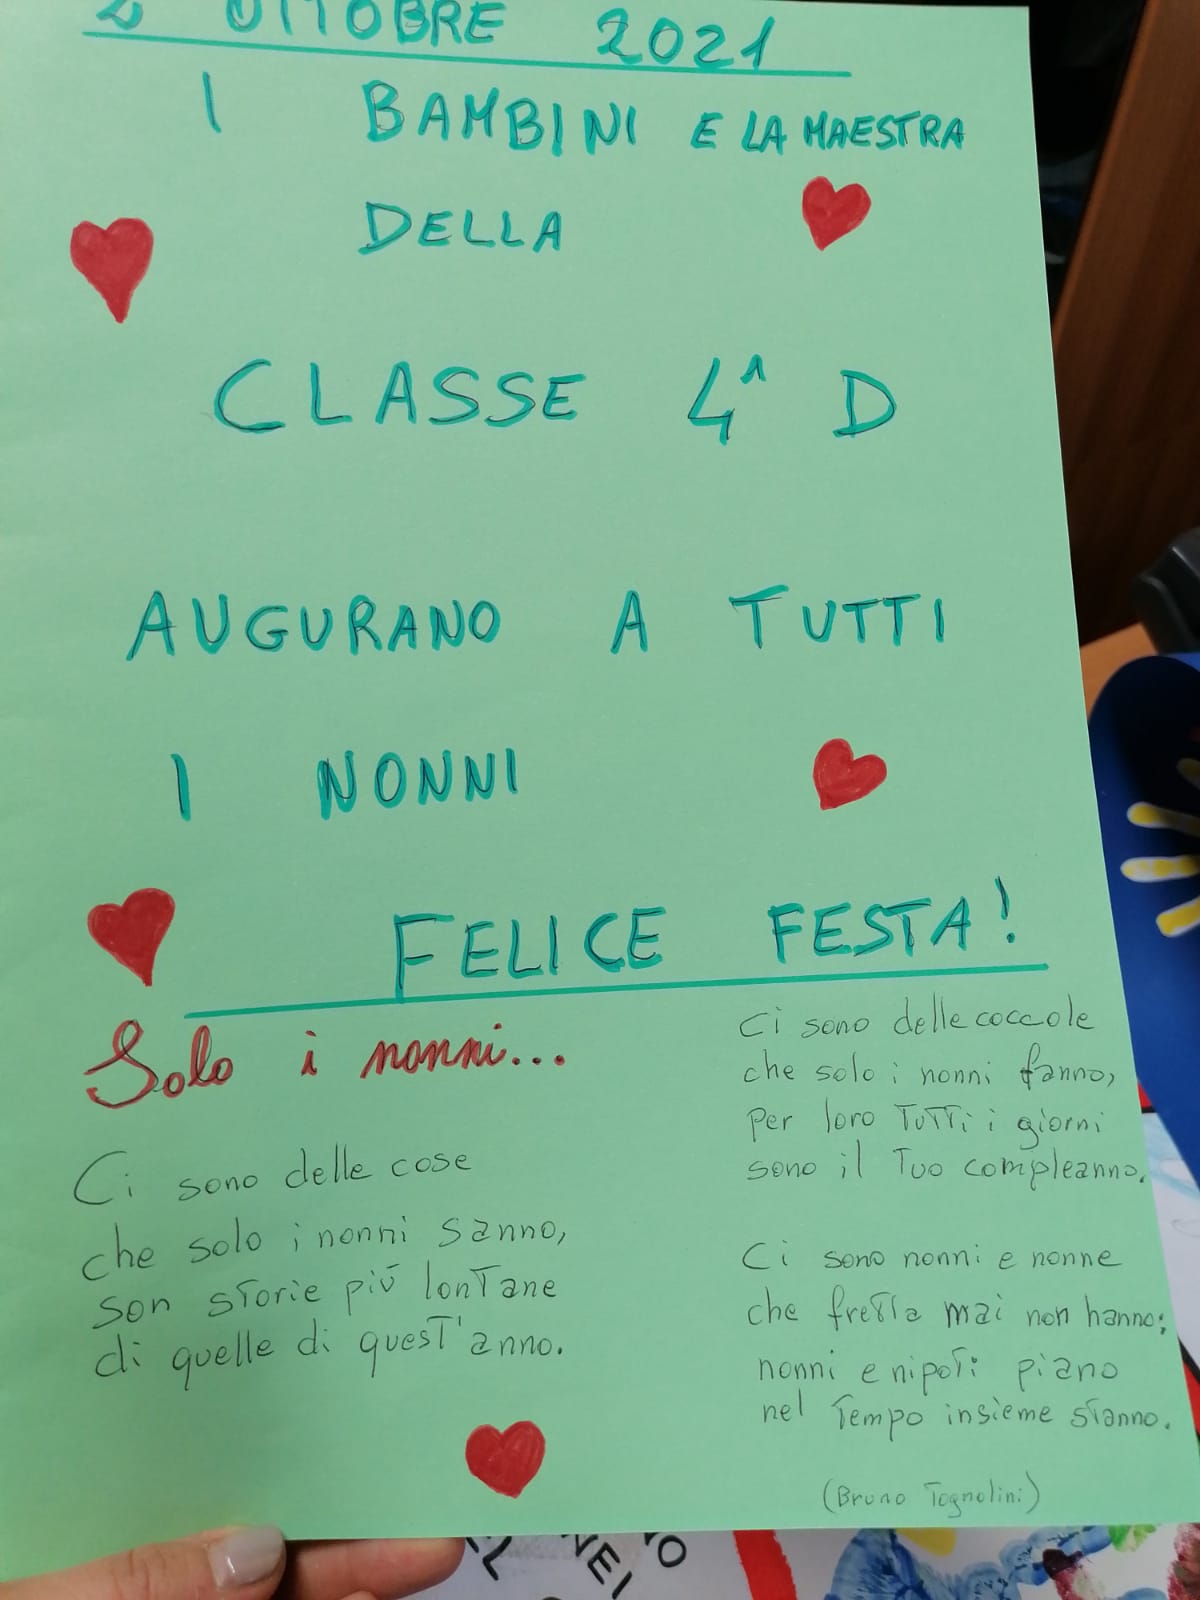 2 OTTOBRE 2021
I BAMBINI E LA MAESTRA
DELLA
CLASSE 4^ D
AUGURANO A TUTTI
I NONNI
FELICE FESTA!
Solo i nonni...
Ci sono delle cose
che solo i nonni sanno,
son storie più lontane
di quelle di quest'anno.
Ci sono delle coccole
che solo i nonni fanno,
per loro tutti i giorni
sono il tuo compleanno.
Ci sono nonni e nonne
che fretta mai non hanno:
nonni e nipoti piano
nel tempo insieme stanno.
(Bruno Tognolini)